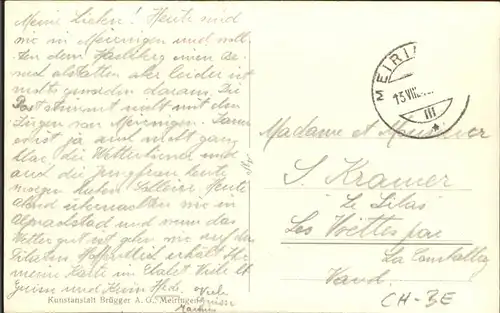 Meine Lieben! Heute sind
wir in Meiringen und woll-
ten dem Hasliberg einen Be-
such abstatten aber leider ist
nichts geworden daraus. Die
Post stimmt nicht mit den
Zügen von Meiringen. Dann
es ist ja auch nicht ganz
klar die Wetterhörner und
auch die Jungfrau heute
morgen haben Heute
Abend übernachten wir in
Alpnachstad und wenn das
Wetter gut ist gehen wir auf den
Pilatus. Hoffentlich erhält Ihr
meine Karte im Etalet Viele lb
Grüsse und Hede. Viele
Grüsse
Kunstanstalt Brügger A. G., Meiringen
MEIRINGEN
13 VIII
III
Madame et Monsieur
S. Kramer
Le Lilas
Les par
La
Vaud.
CH-BE